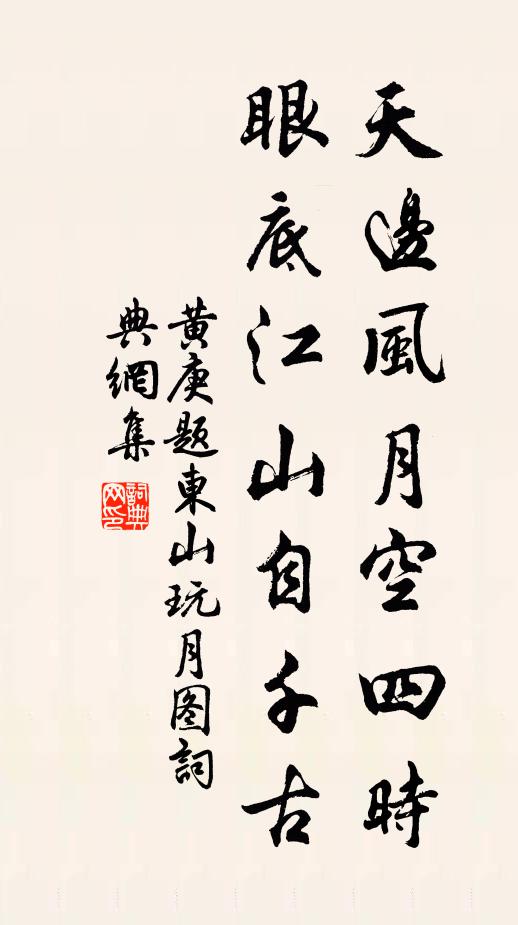 天邊風月空四時
眼底江山自千古
黃庚題東山玩月图詞
典網集
詞典
网印